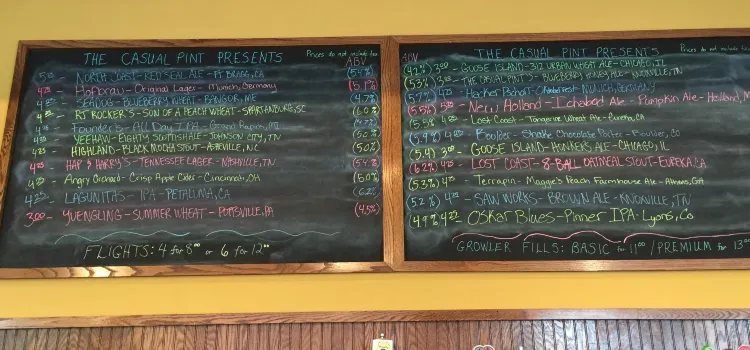 THE CASUAL PINT PRESENTS Prices do not include tax
ABV
5.00 - NORTH COAST - RED SEAL ALE - FT BRAGG, CA (5.4%)
4.75 - HOFBRAU - Original Lager - Munich, Germany (5.1%)
4.25 - SEADOG - BLUEBERRY WHEAT - BANGOR, ME (4.7%)
4.25 - RJ ROCKER'S - SON OF A PEACH WHEAT - SPARTANBURG, SC (6.0%)
Founder's - All Day IPA - Grand Rapids, MI
YEEHAW - EIGHTY SCOTTISH ALE - JOHNSON CITY, TN (5.0%)
HIGHLAND - BLACK MOCHA STOUT - ASHEVILLE, NC (5.0%)
4.25 - HAP & HARRY'S - TENNESSEE LAGER - NASHVILLE, TN
4.25 - Angry Orchard - Crisp Apple Cider - Cincinnati, OH (5.0%)
LAGUNITAS - IPA - PETALUMA, CA
3.00 - YUENGLING - SUMMER WHEAT - POTTSVILLE, PA (4.5%)
FLIGHTS: 4 for 8.00 or 6 for 12.00
THE CASUAL PINT PRESENTS Prices do not include
ABV
(4.2%) 3.00 - GOOSE ISLAND - 312 URBAN WHEAT ALE - CHICAGO, IL
THE CASUAL PINT - BLUEBERRY HONEY ALE - KNOXVILLE, TN
Hacker Pschorr - Oktoberfest - MUNICH, GERMANY
(5.5%) New Holland - Ichabod Ale - Pumpkin Ale - Holland, M
Lost Coast - Tangerine Wheat Ale - Eureka, CA
(5.9%) Boulder - Shake Chocolate Porter - Boulder, CO
(5.4) 3.00 - GOOSE ISLAND - HONKER'S ALE - CHICAGO, IL
LOST COAST - 8-BALL OATMEAL STOUT - EUREKA, CA
(5.3%) Terrapin - Maggie's Peach Farmhouse Ale - Athens, GA
(5.2%) SAW WORKS - BROWN ALE - KNOXVILLE, TN
(4.9%) 4.25 - OSKAR Blues - Pinner IPA - Lyons, Co
GROWLER FILLS: BASIC for 11.00 / PREMIUM for 13